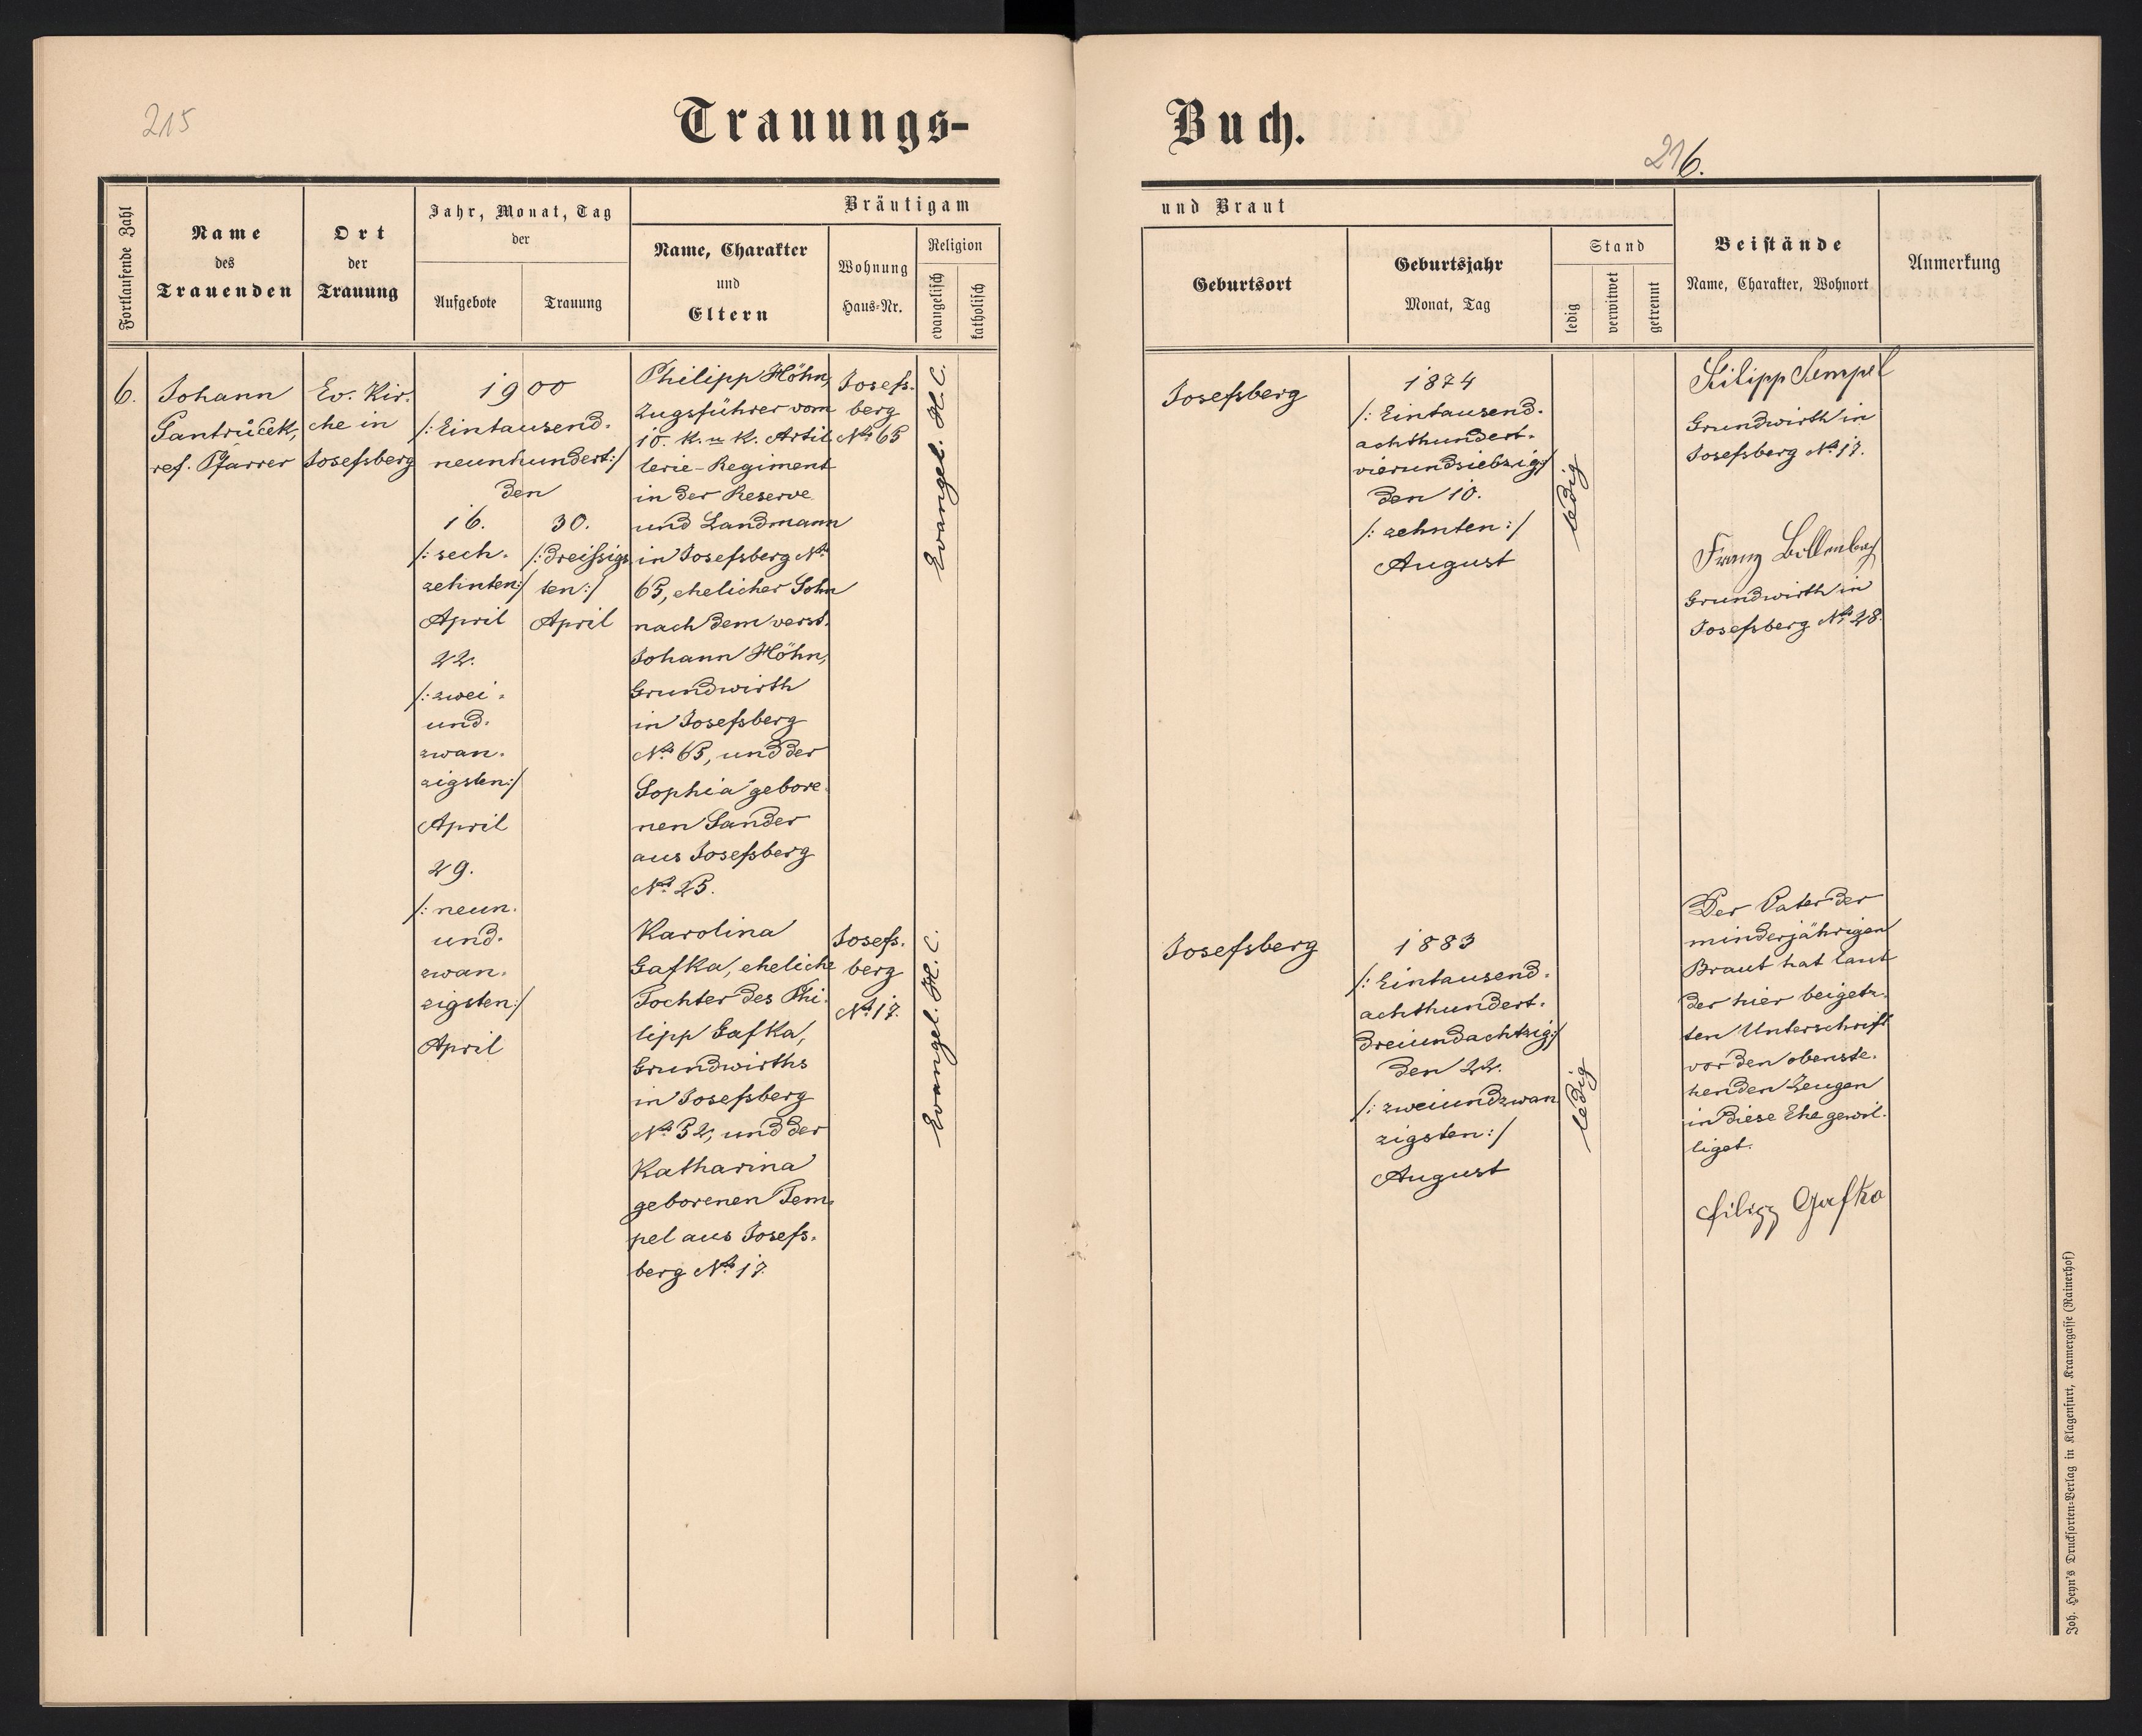 215
Trauungs-
Buch.
216.
Fortlaufende Zahl
Name
des
Trauenden
Ort
der
Trauung
Jahr, Monat, Tag
der
Aufgebote
Trauung
Bräutigam
Name, Charakter
und
Eltern
Wohnung
Haus-Nr.
Religion
evangelisch
katholisch
und Braut
Geburtsort
Geburtsjahr
Monat, Tag
Stand
ledig
verwitwet
getrennt
Beistände
Name, Charakter, Wohnort
Anmerkung
6.
Johann
Jantrůček,
ref. Pfarrer
Ev. Kir-
che in
Josefsberg
1900
/: Eintausend-
neunhundert :/
den
16.
/: sech-
zehnten :/
April
22.
/: zwei-
und-
zwan-
zigsten :/
April
29.
/: neun-
und-
zwan-
zigsten :/
April
30.
/: dreißigs-
ten :/
April
Philipp Höhn,
Zugsführer vom
10. k. u. k. Artil-
lerie-Regiment
in der Reserve
und Landmann
in Josefsberg No
65, ehelicher Sohn
nach dem verst.
Johann Höhn,
Grundwirth
in Josefsberg
No 65, und der
Sophia gebore-
nen Sander
aus Josefsberg
No 25.
Josefs-
berg
No 65
Evangel. H. C.
Josefsberg
1874
/: Eintausend-
achthundert-
vierundsiebzig :/
den 10.
/: zehnten :/
August
ledig
Filipp Tempel
Grundwirth in
Josefsberg No 17.
Franz Bollenbach
Grundwirth in
Josefsberg No 28.
Karolina
Gafka, eheliche
Tochter des Phi-
lipp Gafka,
Grundwirths
in Josefsberg
No 52, und der
Katharina
geborenen Tem-
pel aus Josefs-
berg No 17.
Josefs-
berg
No 17.
Evangel. H. C.
Josefsberg
1883
/: Eintausend-
achthundert-
dreiundachtzig :/
den 22.
/: zweiundzwan
zigsten :/
August
ledig
Der Vater der
minderjährigen
Braut hat laut
der hier beigetz-
ten Unterschrift
vor den obenste-
henden Zeugen
in diese Ehe gewil-
liget.
Filipp Gafka
Joh. Heyn's Drucksorten-Verlag in Klagenfurt, Kramergasse (Rainerhof)